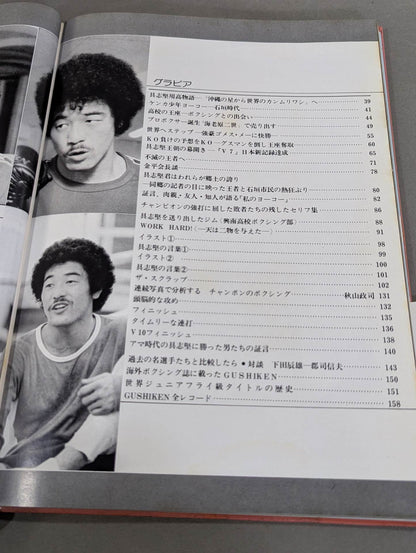 グラビア
具志堅用高物語—「沖縄の星から世界のカンムリワシ」へ 39
ケンカ少年ヨーコー—石垣時代 41
高校の王座—ボクシングとの出会い 44
プロボクサー誕生“海老原二世”で売り出す 49
世界へステップ—強豪ゴメス・メーに快勝 55
KO負けの予想をKO—グスマンを倒し王座奪取 60
具志堅王朝の幕開き—「V7」日本新記録達成 65
不滅の王者へ 71
金平会長談 78
具志堅君はわれらが郷土の誇り
—同郷の記者の目に映った王者と石垣市民の熱狂ぶり 80
証言、肉親・友人・知人が語る「私のヨーコー」 82
チャンピオンの強打に回した敗者たちの残したセリフ集 86
具志堅を送り出したジム(興南高校ボクシング部) 88
WORK HARD!〈一天は二物を与えた—〉 91
イラスト① 98
具志堅の言葉① 99
イラスト② 100
具志堅の言葉② 101
ザ・スクラップ 102
連続写真で分析する チャンポンのボクシング 秋山政司 131
頭脳的な攻め 132
フィニッシュ 134
タイムリーな連打 136
V10フィニッシュ 138
アマ時代の具志堅に勝った男たちの証言 140
過去の名選手たちと比較したら●対談 下田辰雄—郡司信夫 143
海外ボクシング誌に載ったGUSHIKEN 150
世界ジュニアフライ級タイトルの歴史 151
GUSHIKEN全レコード 158